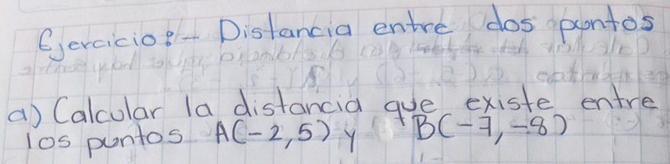 Ejercicio:- Distancia entre dos puntos
a) Calcular la distancia que existe entre
los puntos A(-2,5) y B(-7,-8)